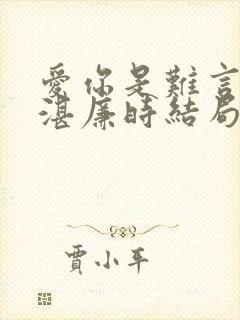 愛你是難言
湛廉時結局
賈小平